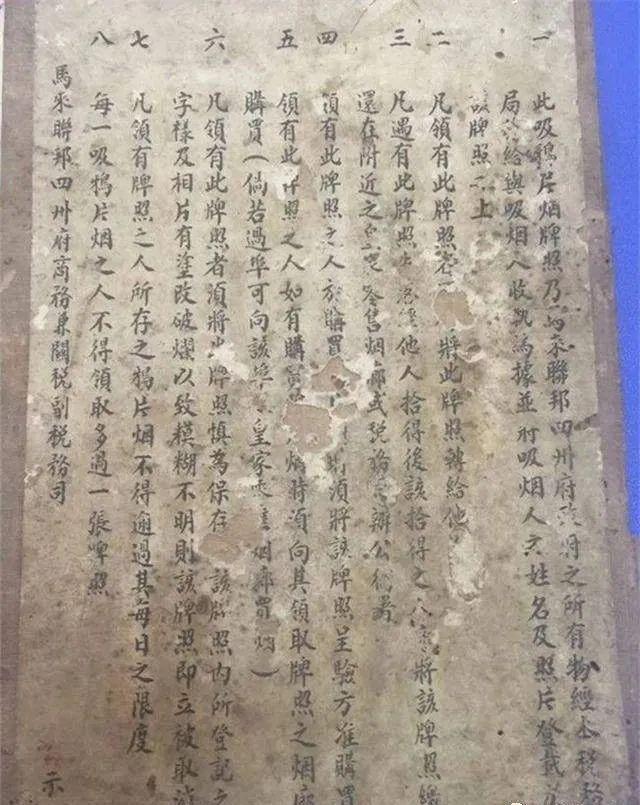 一 此吸鴉片烟牌照乃馬來聯邦四州府政府之所有物經本稅務
局給與吸烟人收執為據並附吸烟人之姓名及照片登載
該牌照之上
二 凡領有此牌照者將此牌照轉給他
三 凡遇有此牌照他人拾得後該拾得之人將該牌照繳
還在附近之售烟廊或稅務辦公衙署
四 領有此牌照之人於購買時須將該牌照呈驗方准購買
五 領有此牌照之人如有購買烟時須向其領取牌照之烟廊
購買(倘若過埠可向該埠皇家烟廊買烟)
六 凡領有此牌照者須將此牌照慎為保存該牌照內所登記之
字樣及相片有塗改破爛以致模糊不明則該牌照即立被取
七 凡領有牌照之人所存之鴉片烟不得逾過其每日之限度
八 每一吸鴉片烟之人不得領取多過一張牌照
馬來聯邦四州府商務兼關稅副稅務司 示